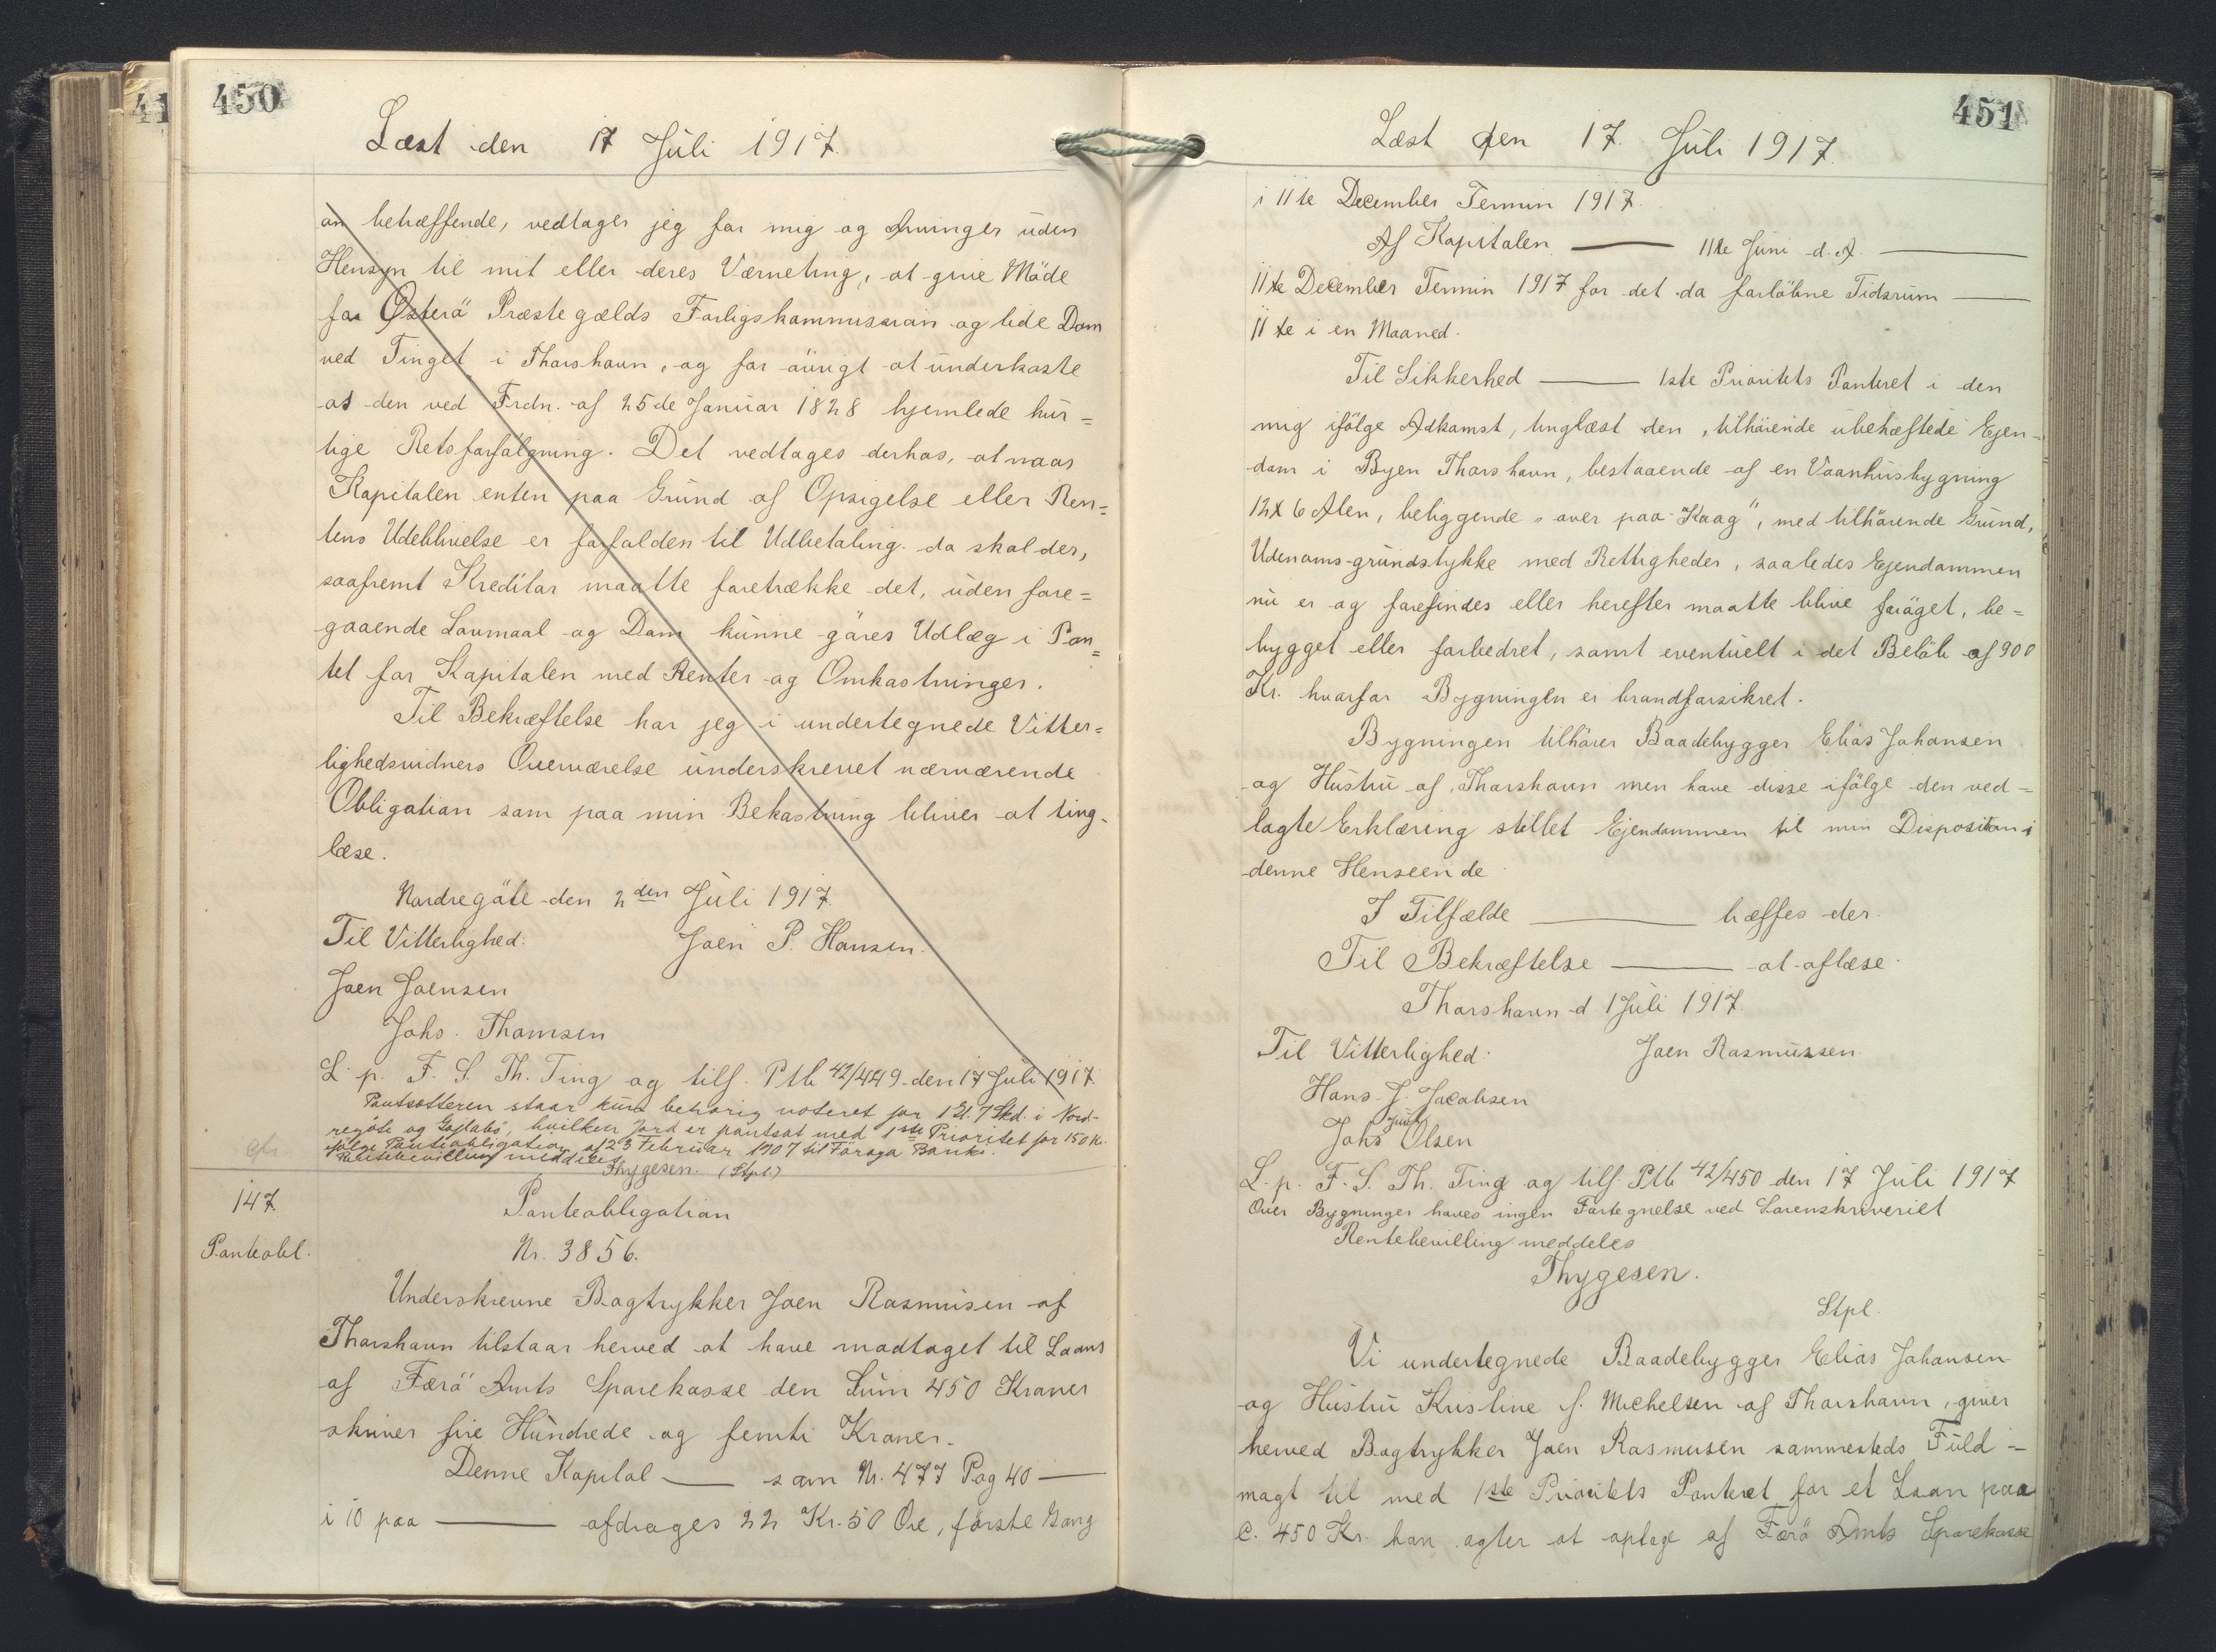 450
Læst den 17 Juli 1917.
an betræffende, vedtager jeg for mig og Arvinger uden
Hensyn til mit eller deres Værneting, at give Möde
for Österö Præstegælds Forligskommission og lide Dom
ved Tinget i Thorshavn, og for övrigt at underkaste
os den ved Frdn. af 25de Januar 1828 hjemlede hur=
tige Retsforfölgning. Det vedtages derhos, at naar
Kapitalen enten paa Grund af Opsigelse eller Ren=
tens Udeblivelse er forfalden til Udbetaling, da skal der,
saafremt Kreditor maatte foretrække det, uden fore=
gaaende Lovmaal og Dom kunne göres Udlæg i Pan=
tet for Kapitalen med Renter og Omkostninger.
Til Bekræftelse har jeg i undertegnede Vitter=
lighedsvidners Overværelse underskrevet nærværende
Obligation som paa min Bekostning bliver at ting-
læse.
Nordregöte den 2den Juli 1917.
Til Vitterlighed: Joen P. Hansen.
Joen Joensen
Johs. Thomsen
L. p. F. S. Th. Ting og tilf. Ptb 42/449 den 17 Juli 1917.
Pantsætteren staar kun behörig noteret for 1 Gl. 7 Skd. i Nord-
regöte og Gojlabö, hvilken Jord er pantsat med 1ste Prioritet for 150 Kr.
ifölge Panteobligation af 23 Februar 1907 til Föroya Banki.
Rentebevilling meddeles
Thygesen. (Stpl.)
147
Panteobl.
Panteobligation
Nr. 3856.
Underskrevne Bogtrykker Joen Rasmusen af
Thorshavn tilstaar herved at have modtaget til Laans
af Færö Amts Sparekasse den Sum 450 Kroner
skriver fire Hundrede og femti Kroner.
Denne Kapital — som Nr. 477 Pag 40 —
i 10 paa — afdrages 22 Kr. 50 Öre, förste Gang
451
Læst den 17. Juli 1917.
i 11te December Termin 1917.
Af Kapitalen — 11te Juni d. A. —
11te December Termin 1917 for det da forlöbne Tidsrum —
11te i en Maaned.
Til Sikkerhed — 1ste Prioritets Panteret i den
mig ifölge Adkomst, tinglæst den , tilhörende ubehæftede Ejen=
dom i Byen Thorshavn, bestaaende af en Vaanhusbygning
12 x 6 Alen, beliggende "over paa Kaag", med tilhörende Grund,
Udenoms-grundstykke med Rettigheder, saaledes Ejendommen
nu er og forefindes eller herefter maatte blive foröget, be=
bygget eller forbedret, samt eventuelt i det Belöb af 900
Kr. hvorfor Bygningen er brandforsikret.
Bygningen tilhörer Baadebygger Elias Johansen
og Hustru af Thorshavn men have disse ifölge den ved=
lagte Erklæring stillet Ejendommen til min Disposition i
denne Henseende
I Tilfælde — træffes der.
Til Bekræftelse — at aflæse.
Thorshavn d. 1 Juli 1917.
Til Vitterlighed: Joen Rasmussen
Hans J. Jacobsen
Johs Olsen
L. p. F. S. Th. Ting og tilf. Ptb 42/450 den 17 Juli 1917
Over Bygninger haves ingen Fortegnelse ved Sorenskriveriet
Rentebevilling meddeles
Thygesen.
Stpl.
Vi undertegnede Baadebygger Elias Johansen
og Hustru Kristine f. Michelsen af Thorshavn, giver
herved Bogtrykker Joen Rasmusen sammesteds Fuld=
magt til med 1ste Prioritets Panteret for et Laan paa
c. 450 Kr. han agter at optage af Færö Amts Sparekasse